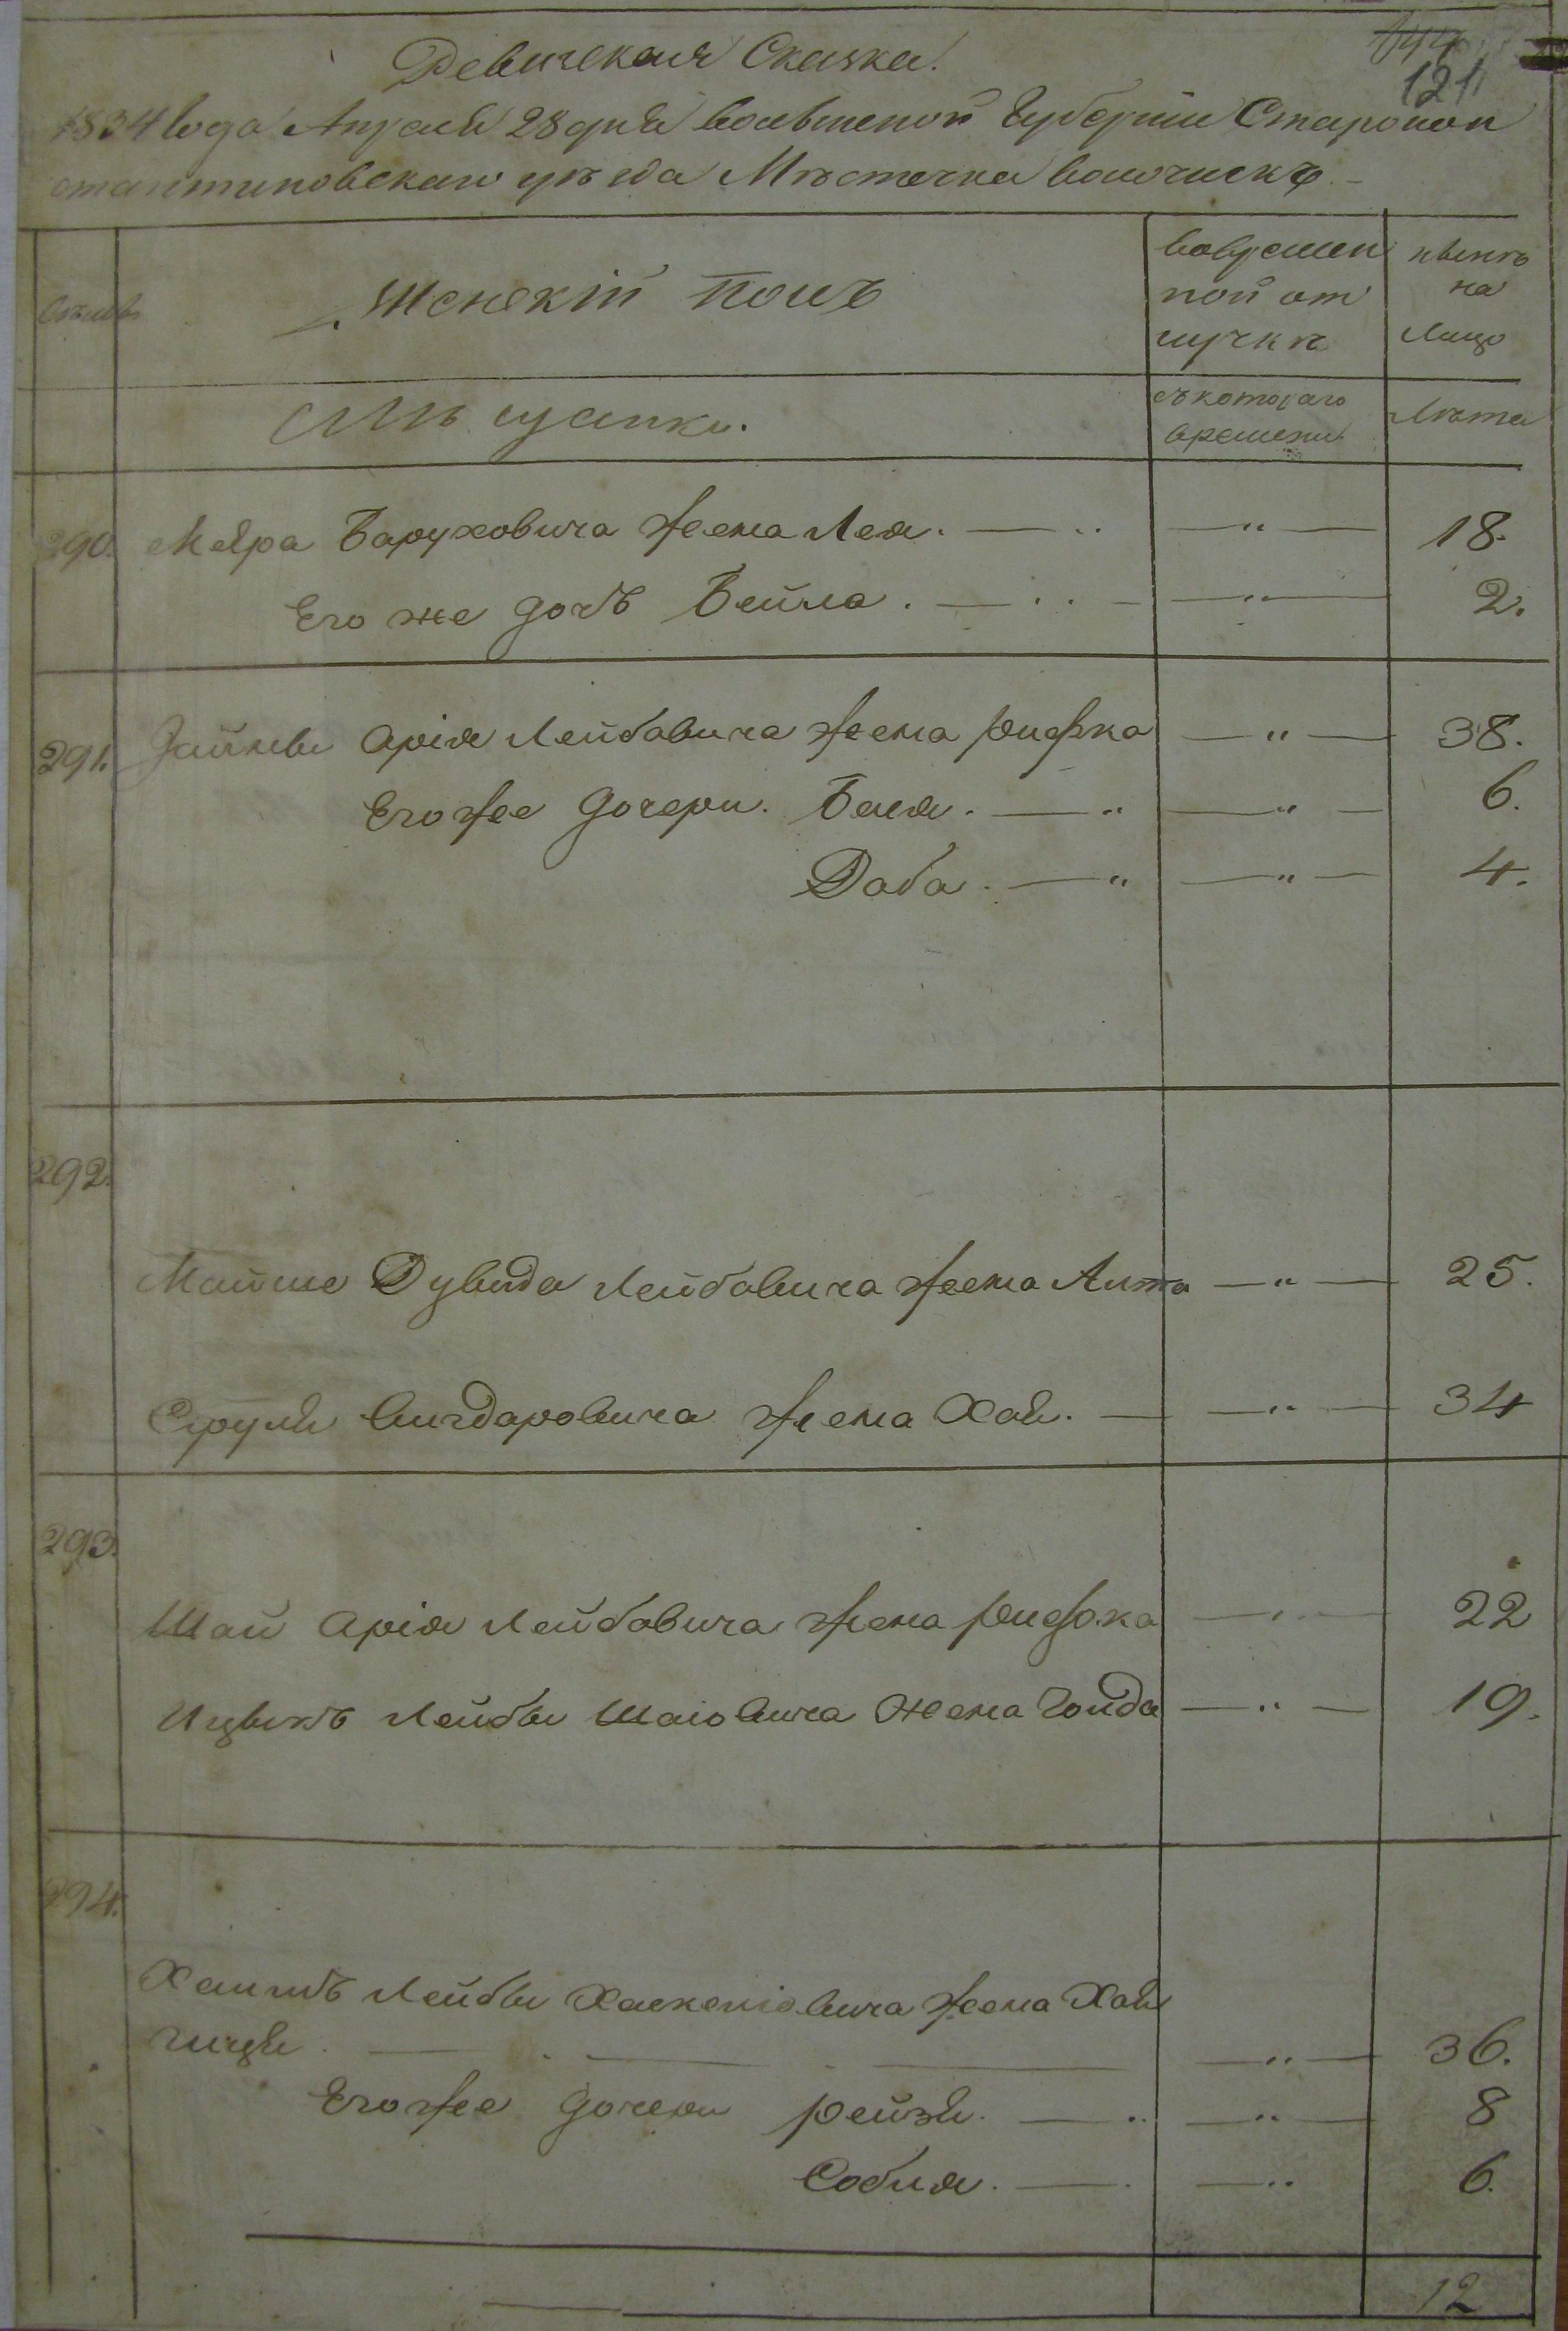 Ревижская Сказка.
121
1834 Года Апреля 28 дня Волынской Губернии Староконс
стантиновскаго уезда Местечка Волочискъ. —
Семьи
Женскій Полъ
Вовремен
ной от
лучкѣ
нынѣ
на
Лицо
Мѣщанки.
съ котораго
времени
Лѣта
290. Меяра Баруховича Жена Лея. — — " — 18.
Его же дочь Бейла. — — " — 2.
291. Зайнвл Арія Лейбовича Жена Рифка — " — 38.
Егоже Дочери. Бася. — " — " — 6.
Доба. — " — " — 4.
292.
Мойше Дувида Лейбовича Жена Лита — " — 25.
Сруля Вигдаровича Жена Хая. — — " — 34
293.
Шаи Арія Лейбовича Жена Рифка — " — 22
Ицыкъ Лейбы Шаіовича Жена Гойда — " — 19.
294.
Хаимъ Лейбы Хаскеліовича Жена Хая
Гиця. — — — — " — 36.
Егоже Дочери Рейзя. — " — " — 8
Собия. — — " 6.
12